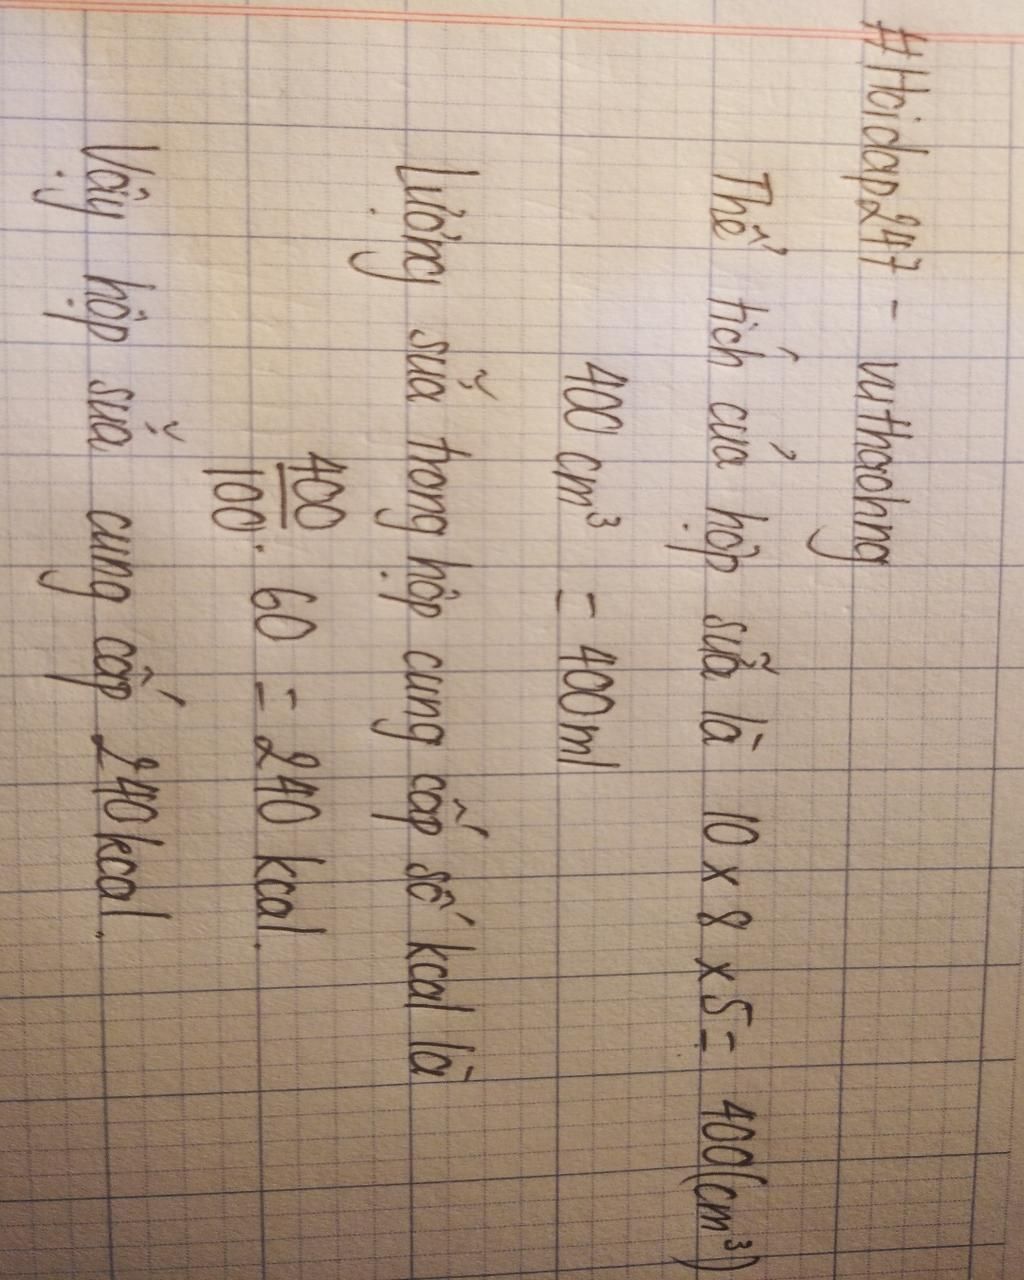 #Hoidap247 - vuthaohng
Thể tích của hộp sữa là 10 x 8 x 5 = 400 (cm³)
400 cm³ = 400ml
Lượng sữa trong hộp cung cấp số kcal là
400/100 . 60 = 240 kcal.
Vậy hộp sữa cung cấp 240 kcal.